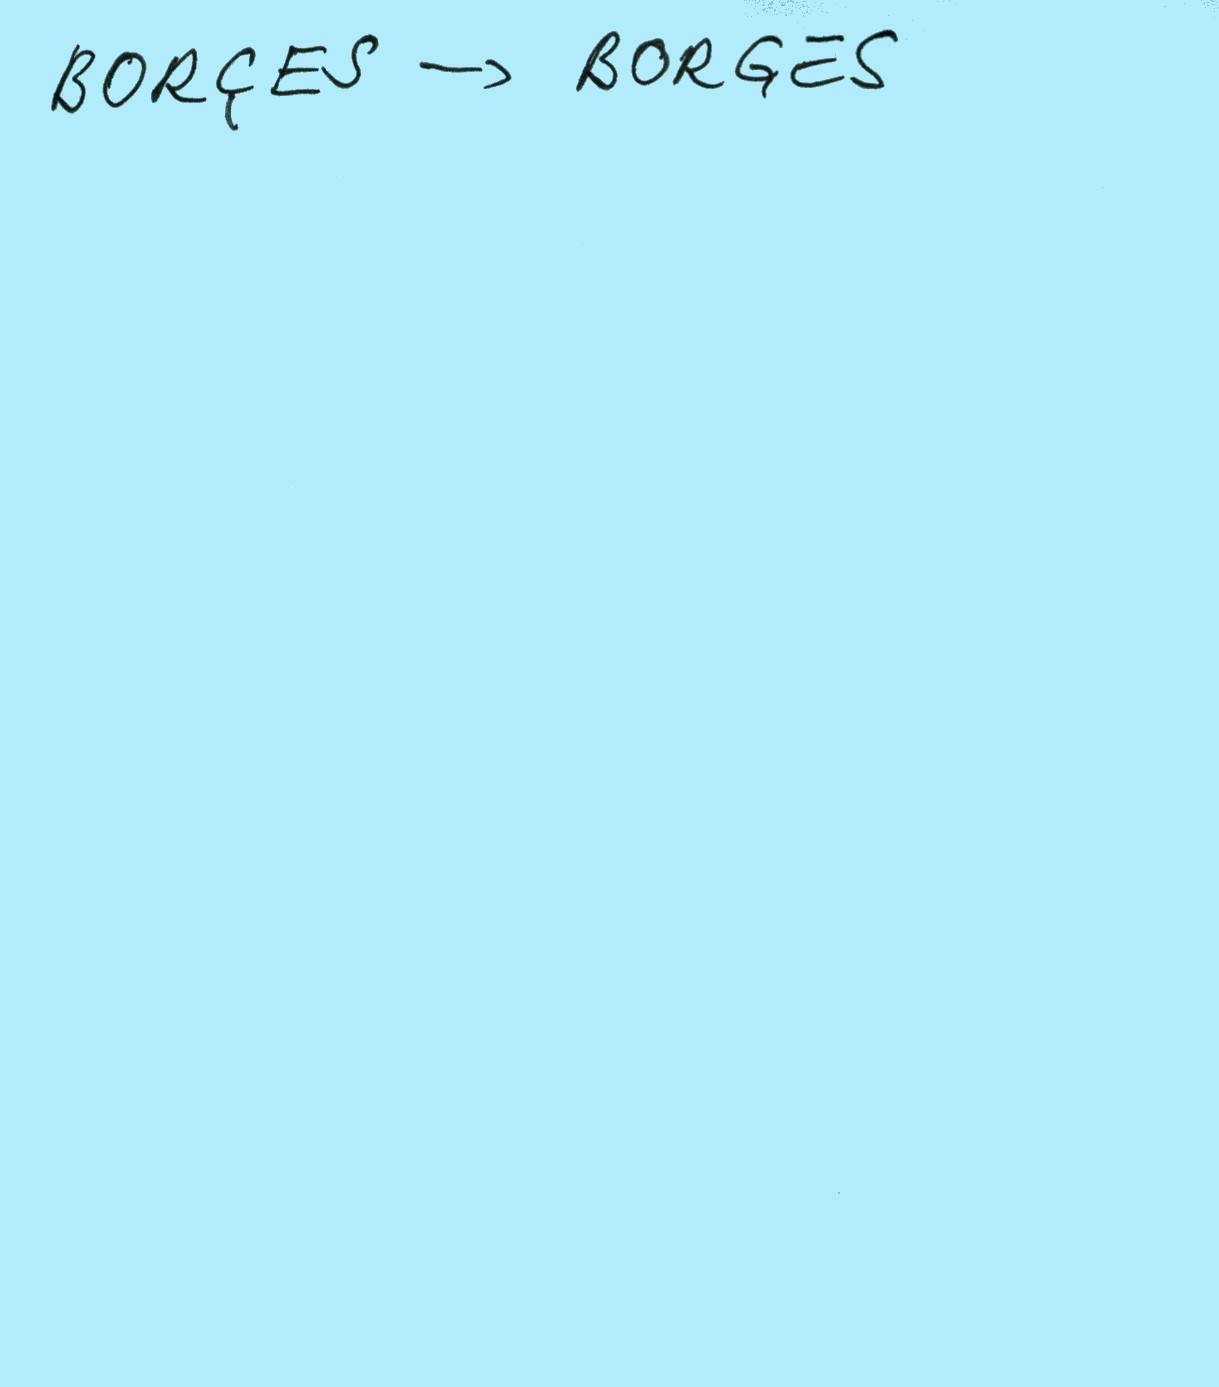 BORÇES → BORGES